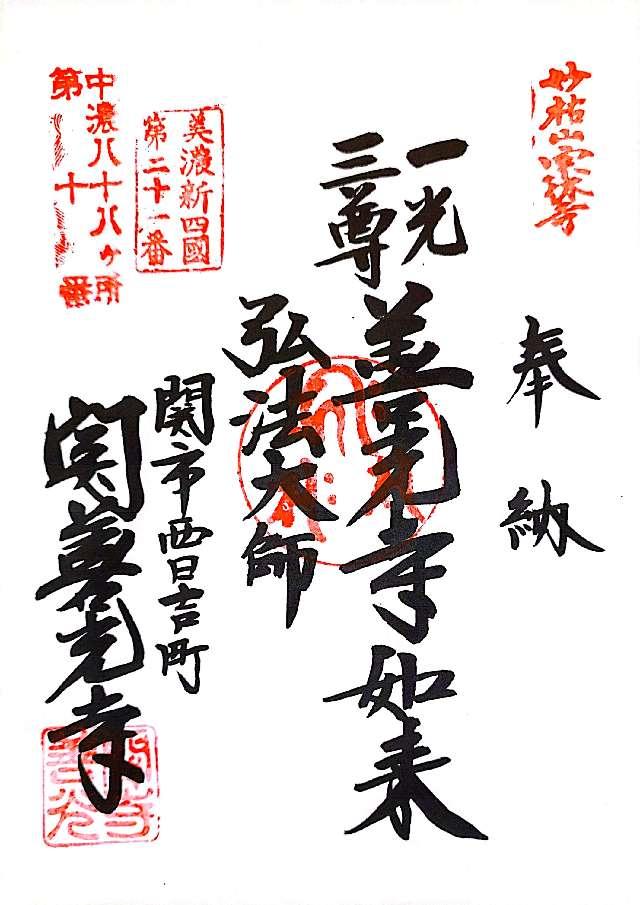 妙祐山宗休寺
奉納
一光
三尊
善光寺如来
弘法大師
美濃新四國
第二十一番
関市西日吉町
中濃八十八ヶ所
第十番
関善光寺